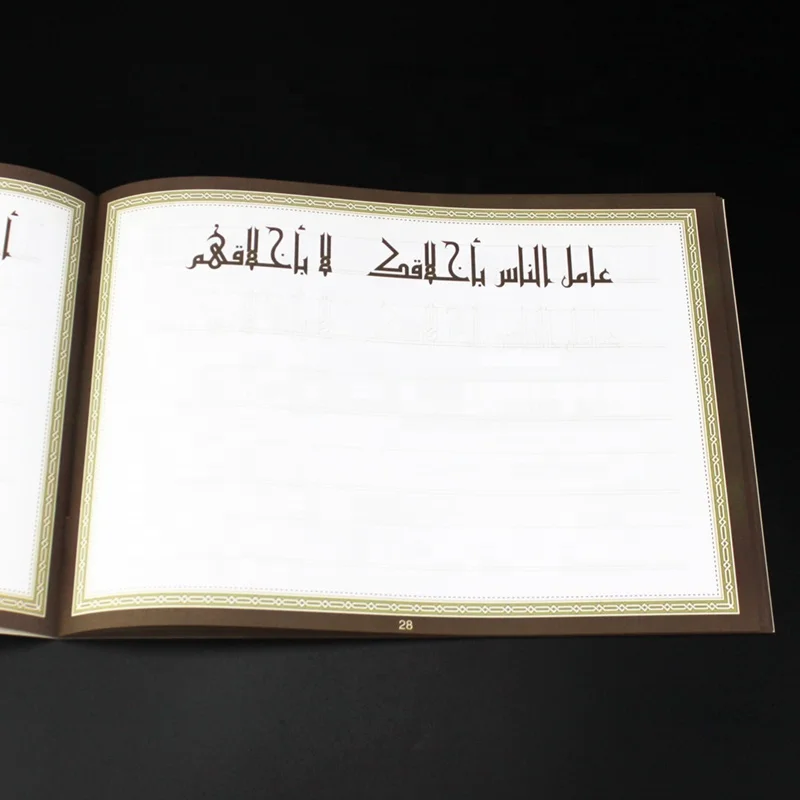 عامل الناس بأخلاقك لا بأخلاقهم
أ
28